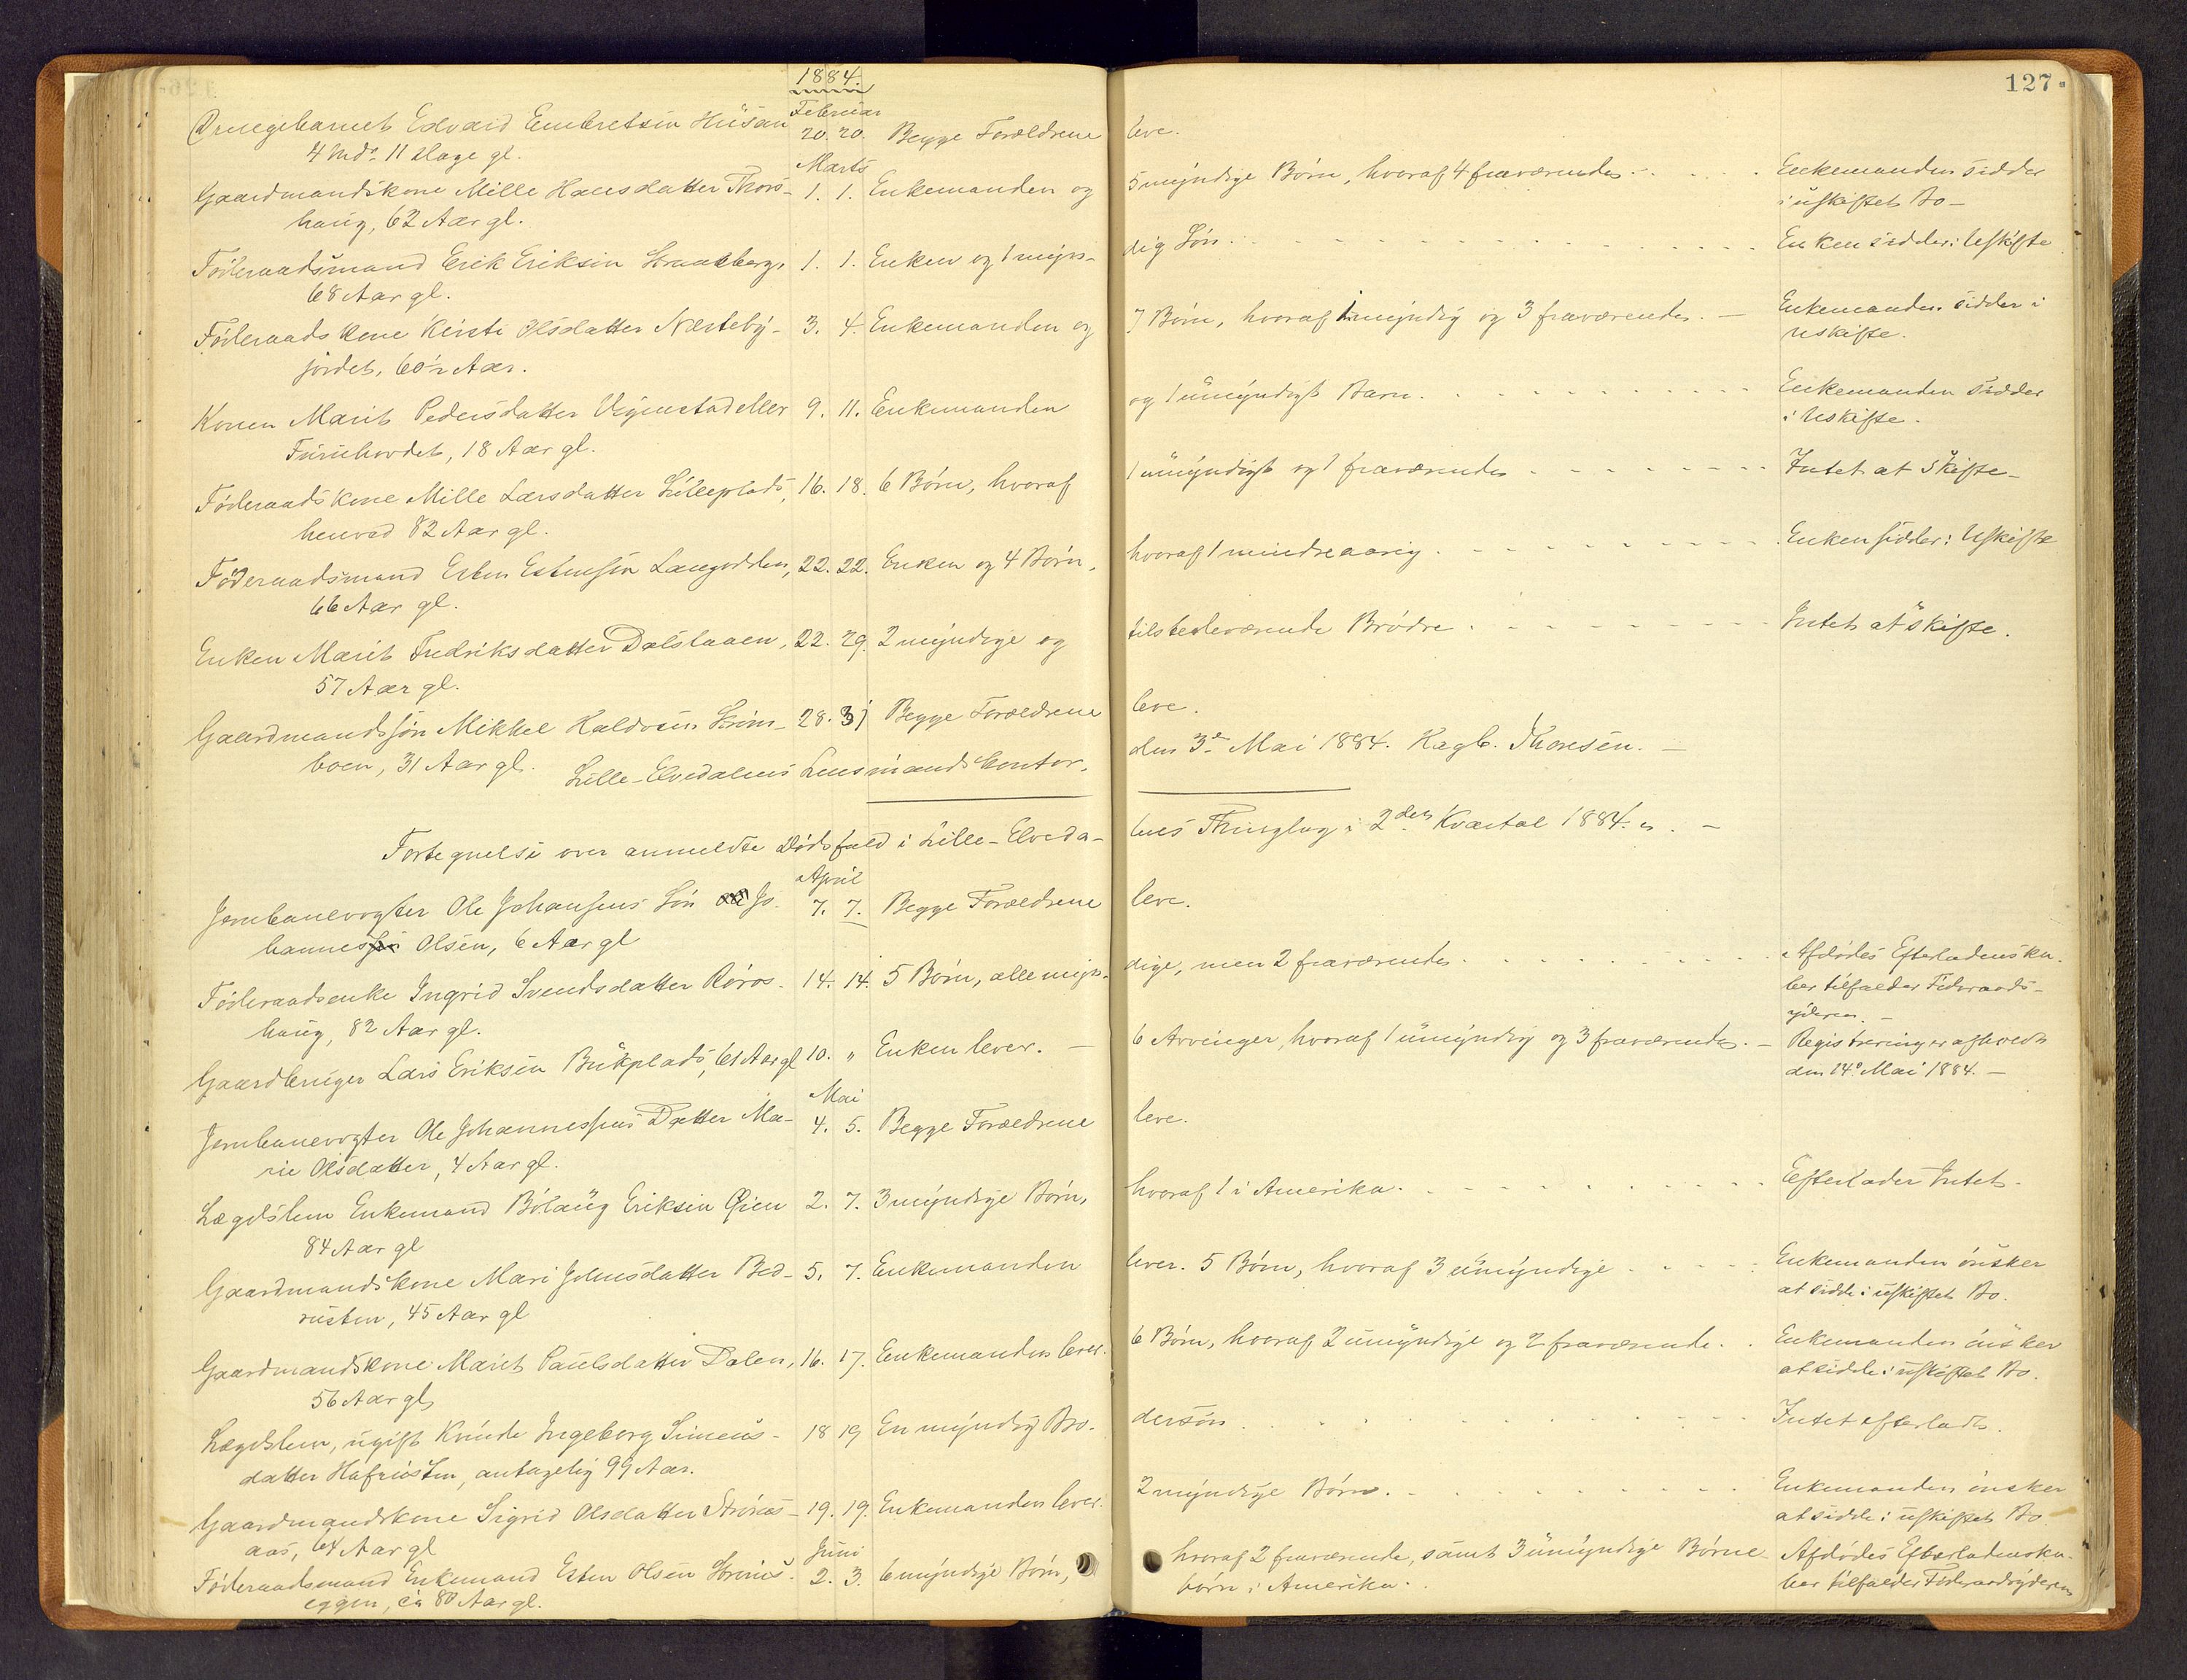 127.
1884.
Februar
Drengebarnet Edvard Embretsen Husan 20. 20. Begge Forældrene leve.
4 Mdr. 11 Dage gl.
Marts
Gaardmandskone Mille Hansdatter Thors- 1. 1. Enkemanden og 5 myndige Børn, hvoraf 4 fraværende. Enkemanden sidder
haug, 62 Aar gl. i uskiftet Bo -
Føderaadsmand Erik Eriksen 1. 1. Enken og 1 myn- dig Søn. Enken sidder i Uskifte
68 Aar gl.
Føderaadskone Kirsti Olsdatter Nærsteby- 3. 4. Enkemanden og 7 Børn, hvoraf 1 myndig og 3 fraværende. - Enkemanden sidder i
jordet, 60½ Aar. Uskifte.
Konen Marit Pedersdatter eller 9. 11. Enkemanden og 1 umyndigt Barn. Enkemanden sidder
Furuhovdet, 18 Aar gl. i Uskifte.
Føderaadskone Mille Larsdatter Lilleplads, 16. 18. 6 Børn, hvoraf 1 umyndigt og 1 fraværende Intet at skifte -
henved 82 Aar gl.
Føderaadsmand Esten Estensen Langodden, 22. 22. Enken og 4 Børn, hvoraf 1 mindreaarig. Enken sidder i Uskifte
66 Aar gl.
Enken Marit Fredriksdatter Dalslaaen, 22. 29. 2 myndige og tilstedeværende Brødre. Intet at skifte.
57 Aar gl.
Gaardmandssøn Mikkel Haldorsen Strøm- 28. 31 Begge Forældrene leve.
boen, 31 Aar gl. Lille-Elvedalens Lensmandskontor, den 3de Mai 1884. Hagb. Thoresen. -
Fortegnelse over anmeldte Dødsfald i Lille-Elveda- lens Thinglag i 2det Kvartal 1884. -
April
Jernbanevogter Ole Johansens Søn Jo- 7. 7. Begge Forældrene leve.
hannes Olsen, 6 Aar gl
Føderaadsenke Ingrid Svendsdatter Røros- 14. 14. 5 Børn, alle myn- dige, men 2 fraværende. Afdødes Efterladenska-
haug, 82 Aar gl. ber tilfalder Føderaads-
yderen. -
Gaardbruger Lars Eriksen Brukplads, 61 Aar gl 10. " Enken lever. - 6 Arvinger, hvoraf 1 umyndig og 3 fraværende. - Registrering er afholdt
den 14de Mai 1884. -
Mai
Jernbanevogter Ole Johannessens Datter Ma- 4. 5. Begge Forældrene leve.
rie Olsdatter, 4 Aar gl.
Lægdslem Enkemand Eriksen Øien 2. 7. 3 myndige Børn, hvoraf 1 i Amerika. Efterlader Intet.
84 Aar gl
Gaardmandskone Mari Johnsdatter Bed- 5. 7. Enkemanden lever. 5 Børn, hvoraf 3 umyndige Enkemanden ønsker
rusten, 45 Aar gl at sidde i uskiftet Bo.
Gaardmandskone Marit Paulsdatter Dalen, 16. 17. Enkemanden lever. 6 Børn, hvoraf 2 umyndige og 2 fraværende. Enkemanden ønsker
56 Aar gl at sidde i uskiftet Bo.
Lægdslem, ugift Kvinde Ingeborg Simens- 18 19 En myndig Bro- dersøn. Intet efterladt.
datter Hafrusten, antagelig 99 Aar.
Gaardmandskone Sigrid Olsdatter Strøms- 19. 19. Enkemanden lever. 2 myndige Børn. Enkemanden ønsker
aas, 64 Aar gl at sidde i uskiftet Bo
Juni
Føderaadsmand Enkemand Esten Olsen 2. 3. 6 myndige Børn, hvoraf 2 fraværende, samt 3 umyndige Børne- Afdødes Efterladenska-
eggen, ca 80 Aar gl. børn i Amerika. ber tilfalder Føderaadsyderen